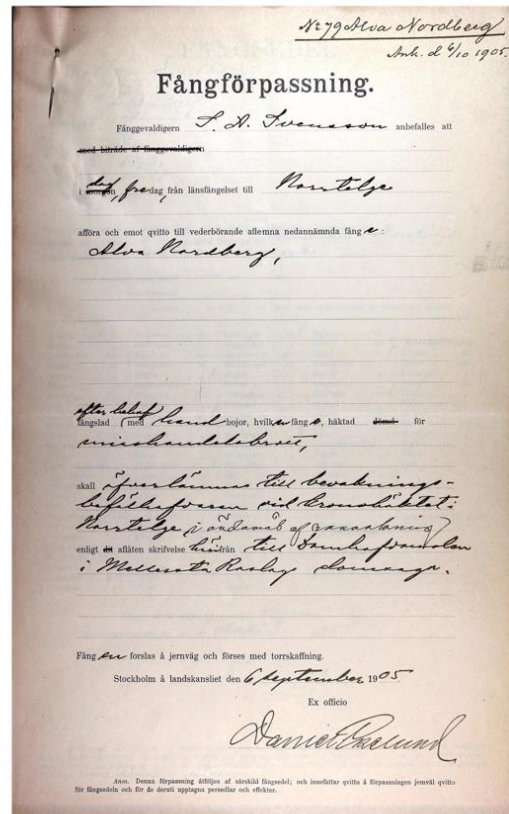 No 79 Alva Nordberg
Ank. d 6/10 1905.
Fångförpassning.
Fånggevaldigern S. A. Svensson anbefalles att
med biträde af fånggevaldigern
i dag, fredag, från länsfängelset till Norrtelge
afföra och emot qvitto till vederbörande aflemna nedannämnda fånge
Alva Nordberg,
efter behof
fängslad (med hand bojor, hvilken fånge, häktad dömd för
misshandelsbrott,
skall öfverlämnas till bevaknings-
befälhafvaren vid kronohäktet i
Norrtelge i ändamål af
enligt aflåten skrifvelse härifrån till Domhafvanden
i Mellersta Roslags domsaga.
Fången forslas å jernväg och förses med torrskaffning.
Stockholm å landskansliet den 6 september 1905
Ex officio
Daniel Ekelund
Anm. Denna förpassning åtföljes af särskild fångsedel; och innefattar qvitto å förpassningen jemväl qvitto
för fångsedeln och för de deruti upptagna persedlar och effekter.